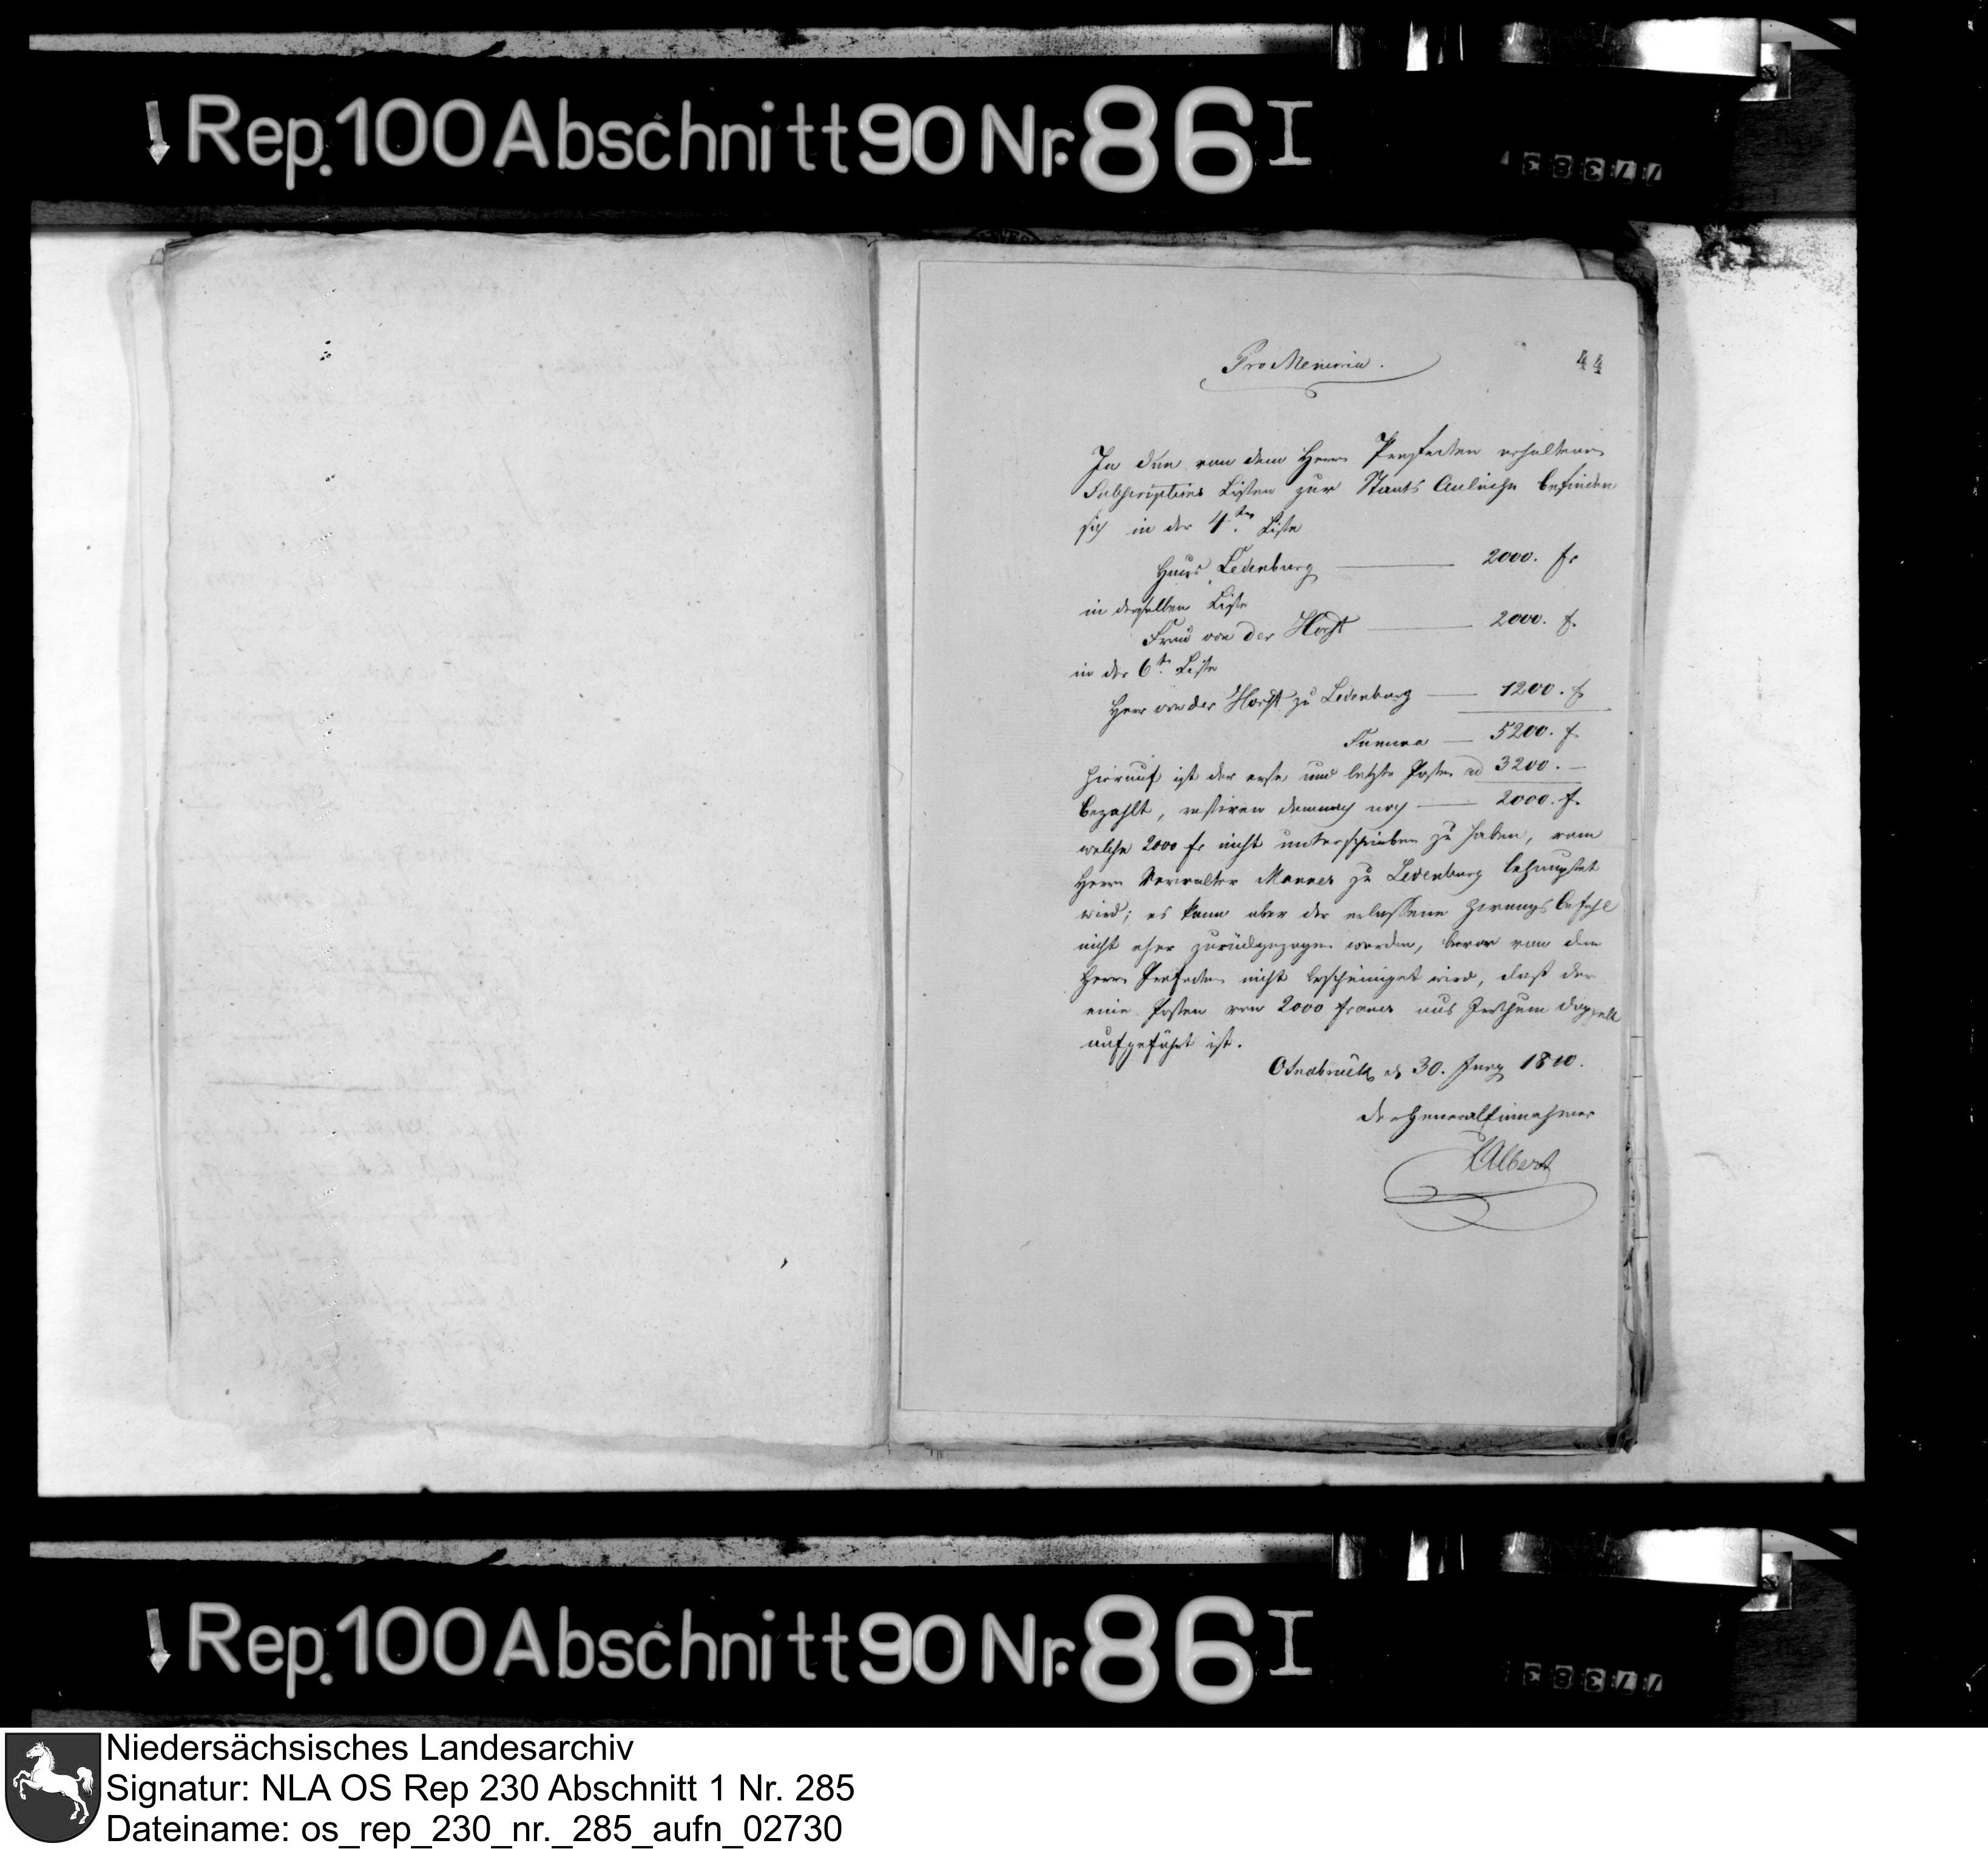 Rep. 100 Abschnitt 90 Nr. 86 I
Pro Memoria.
44
In den von dem Herrn Praefecten erhaltenen
Subscriptions Listen zur Staats Anleihe befinden
sich in der 4ten Liste
Haus Ledenburg — 2000. fr
in derselben Liste
Frau von der Horst — 2000. f.
in der 6ten Liste
Herr von der Horst zu Ledenburg — 1200. f
Summa — 5200. f.
hierauf ist der erste und letzte Posten ad 3200. —
bezahlt, restiren demnach noch — 2000. f.
welche 2000 fr nicht unterschrieben zu haben, vom
Herrn Verwalter Manner zu Ledenburg behauptet
wird; es kann aber der erlassene Zwangs Befehl
nicht eher zurückgezogen werden, bevor von dem
Herrn Prefecten nicht bescheiniget wird, daß der
eine Posten von 2000 francs aus Irrthum doppelt
aufgeführt ist.
Osnabrück d 30. Juny 1810.
der General Einnehmer
Albert
Rep. 100 Abschnitt 90 Nr. 86 I
Niedersächsisches Landesarchiv
Signatur: NLA OS Rep 230 Abschnitt 1 Nr. 285
Dateiname: os_rep_230_nr._285_aufn_02730